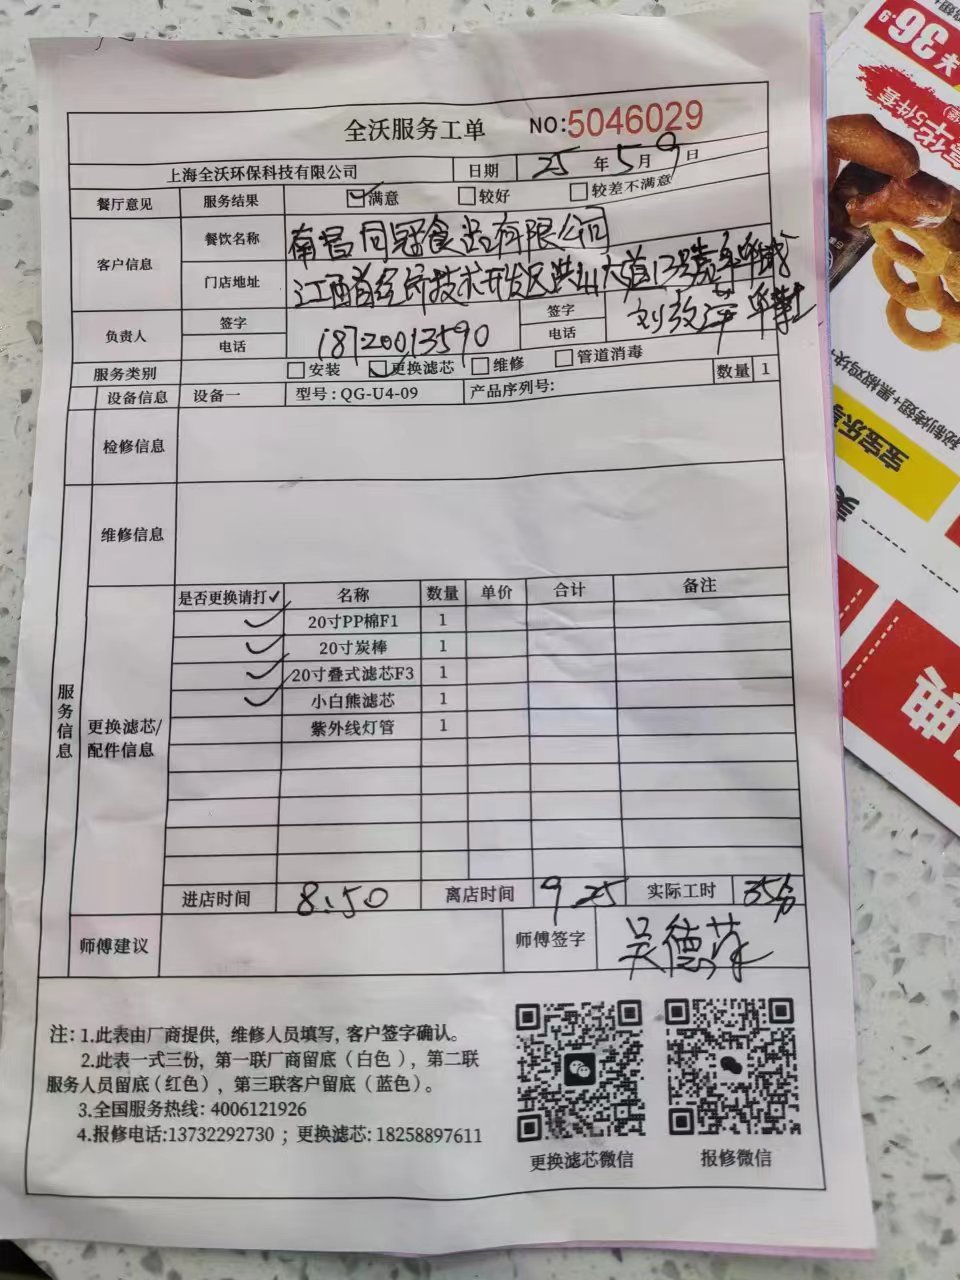 全沃服务工单 NO:5046029
上海全沃环保科技有限公司 日期 25 年 5 月 9 日
餐厅意见 服务结果 ☑满意 □较好 □较差不满意
客户信息 餐饮名称 南昌同冠食品有限公司
门店地址 江西省经济技术开发区洪山大道13号
负责人 签字 电话 18720013590 签字 电话
服务类别 □安装 ☑更换滤芯 □维修 □管道消毒 数量 1
设备信息 设备一 型号:QG-U4-09 产品序列号:
检修信息
维修信息
服务信息
更换滤芯/配件信息
是否更换请打✓ 名称 数量 单价 合计 备注
✓ 20寸PP棉F1 1
✓ 20寸炭棒 1
✓ 20寸叠式滤芯F3 1
✓ 小白熊滤芯 1
紫外线灯管 1
进店时间 8:50 离店时间 9.25 实际工时 35分
师傅建议 师傅签字 吴德
注: 1.此表由厂商提供, 维修人员填写, 客户签字确认。
2.此表一式三份, 第一联厂商留底(白色), 第二联
服务人员留底(红色), 第三联客户留底(蓝色)。
3.全国服务热线: 4006121926
4.报修电话:13732292730 ; 更换滤芯: 18258897611
更换滤芯微信 报修微信
¥36.9
宝宝乐
典